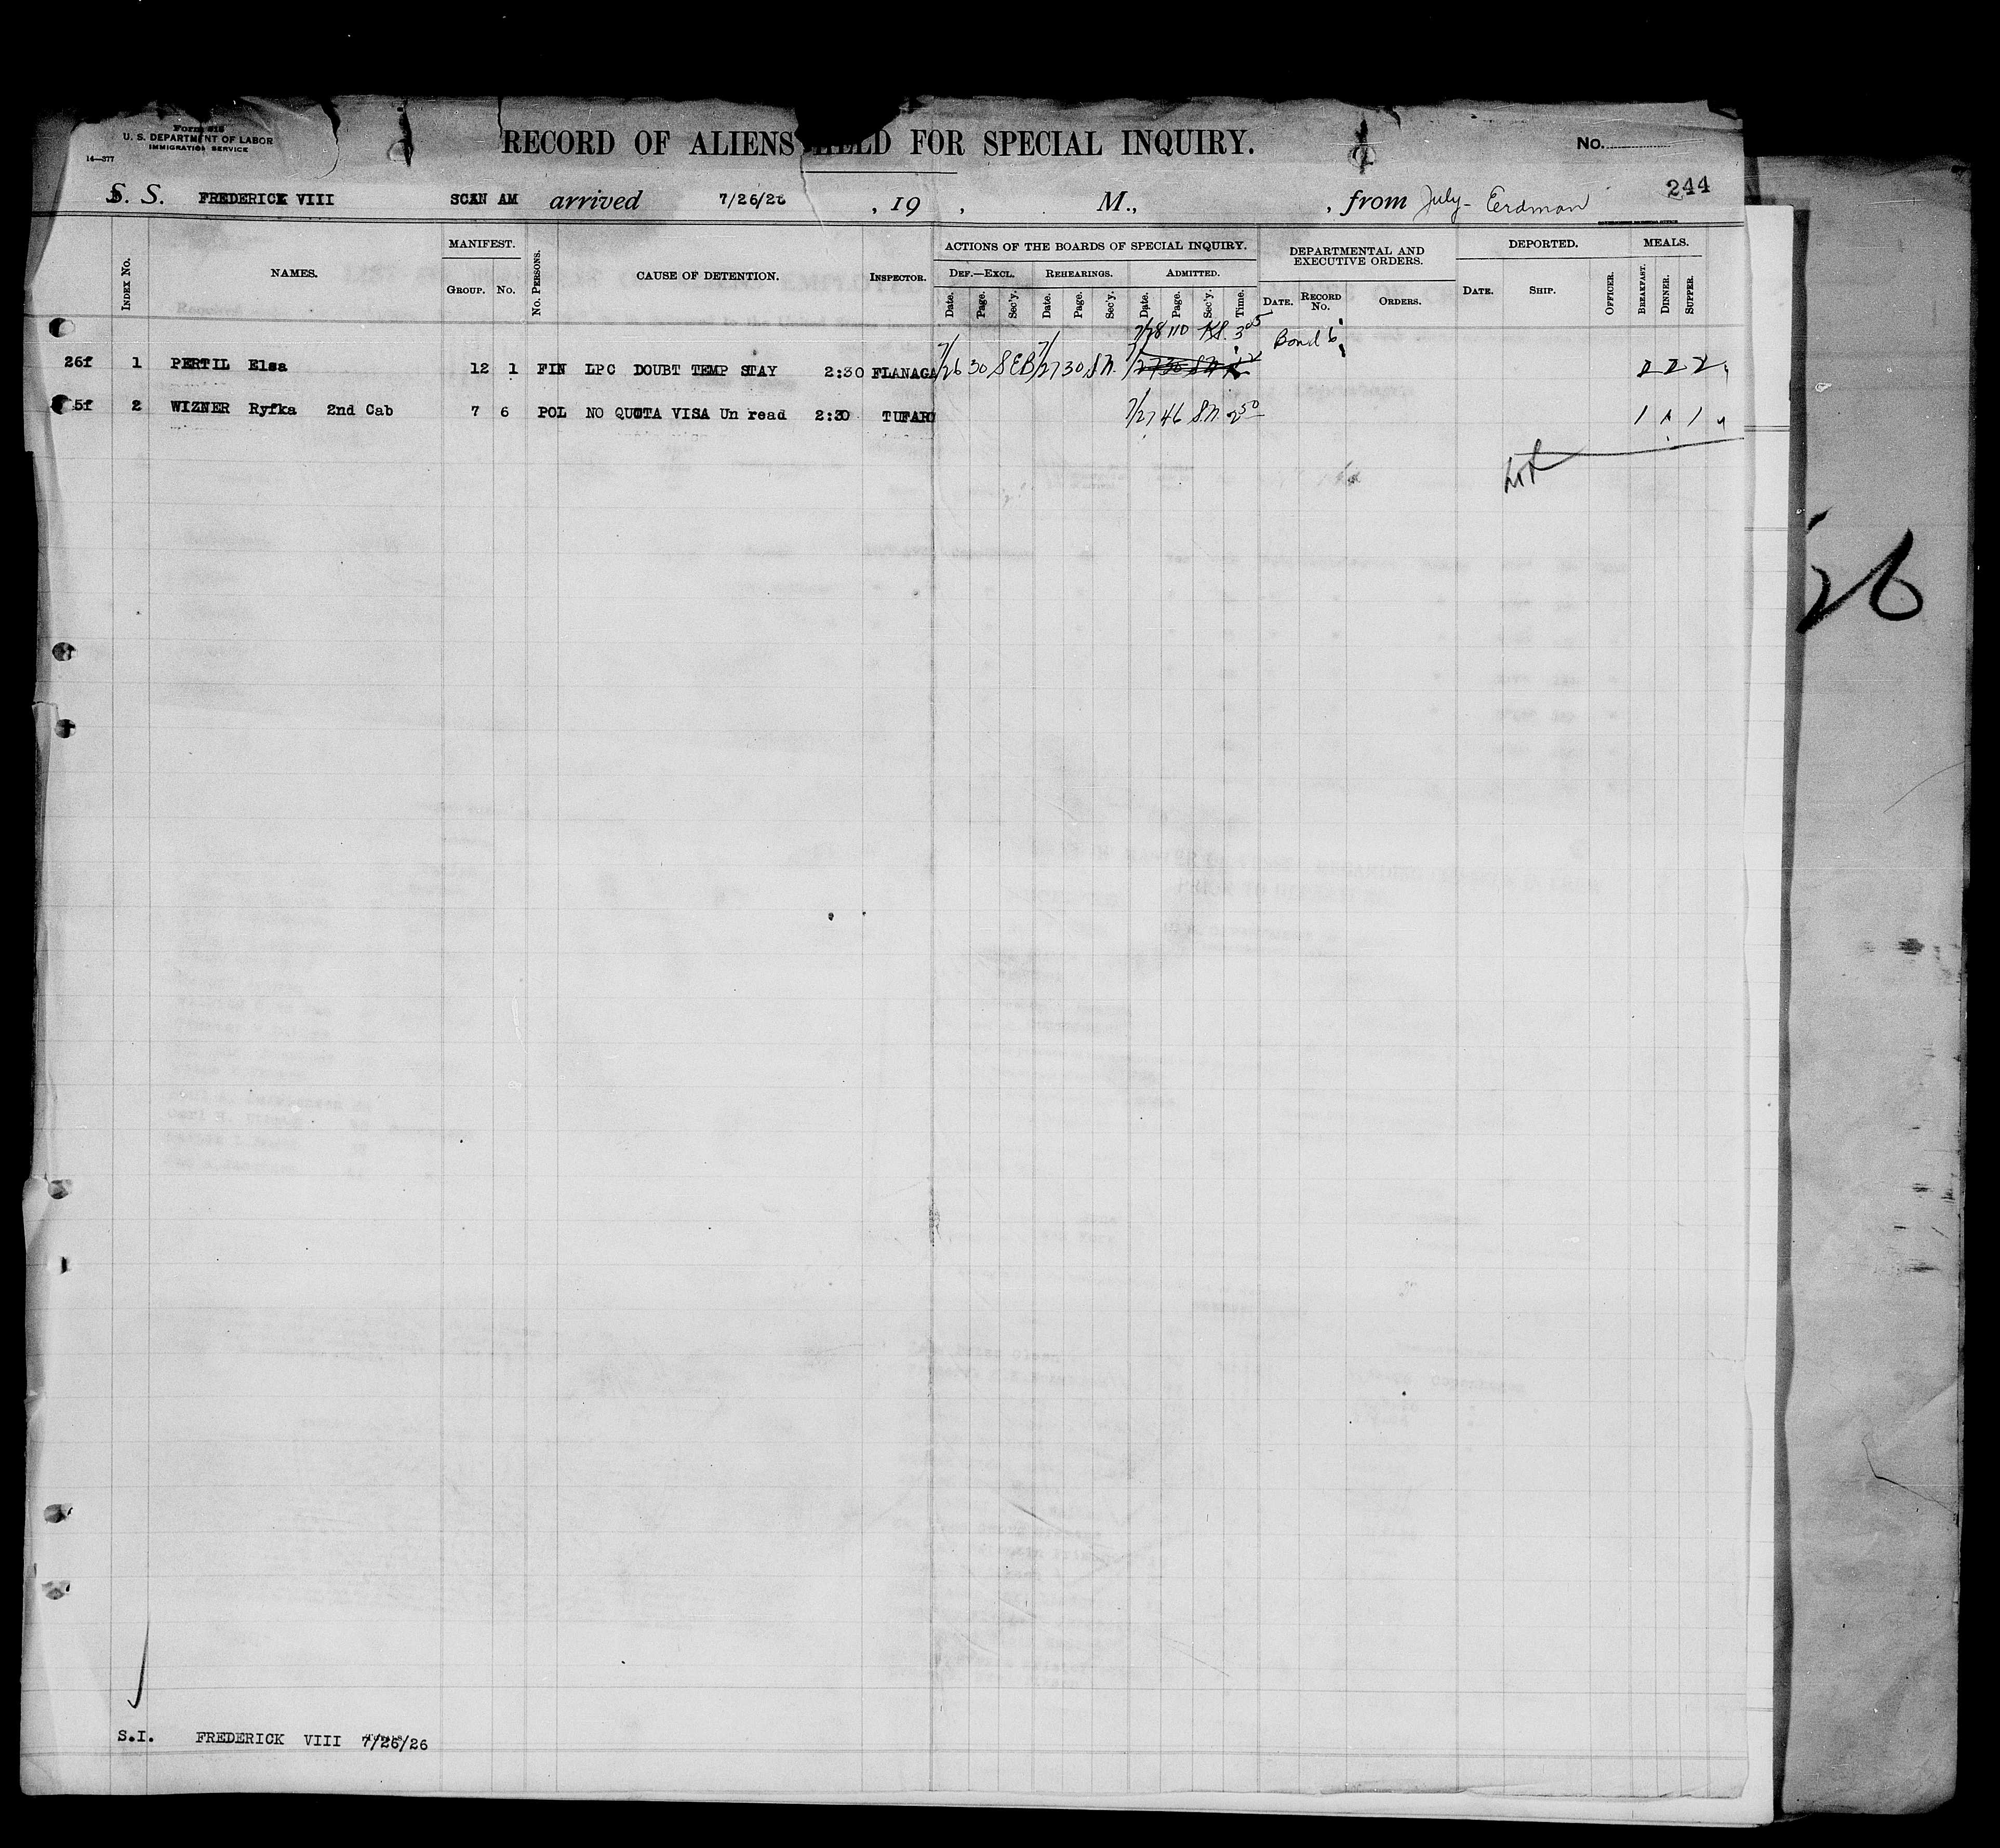 Form 618
U. S. DEPARTMENT OF LABOR
IMMIGRATION SERVICE
14—377
RECORD OF ALIENS HELD FOR SPECIAL INQUIRY.
No.
244
S. S. FREDERICK VIII SCAN AM arrived 7/26/26, 19 , M., , from July- Eerdman
INDEX No. NAMES. MANIFEST. GROUP. No. No. PERSONS. CAUSE OF DETENTION. INSPECTOR. ACTIONS OF THE BOARDS OF SPECIAL INQUIRY. DEPARTMENTAL AND EXECUTIVE ORDERS. DEPORTED. MEALS.
DEF.—EXCL. REHEARINGS. ADMITTED.
Date. Page. Sec'y. Date. Page. Sec'y. Date. Page. Sec'y. Time. DATE. RECORD No. ORDERS. DATE. SHIP. OFFICER. BREAKFAST. DINNER. SUPPER.
7/28 110 KS. 3 05 Bond 6
26f 1 PERTIL Elsa 12 1 FIN LPC DOUBT TEMP STAY 2:30 FLANAGA 7/26 30 SEB 7/27 30 S.N. 7/27 30 S.N. 2 2 2
5f 2 WIZNER Ryfka 2nd Cab 7 6 POL NO QUOTA VISA Un read 2:30 TUFARO 7/27 46 S.N. 2 50 1 1 1
26
S.I. FREDERICK VIII 7/26/26